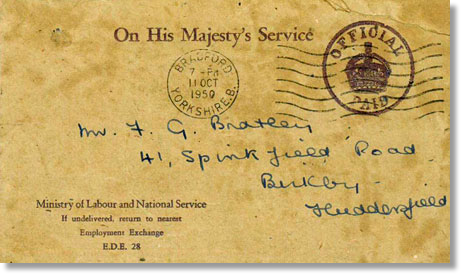 On His Majesty's Service
OFFICIAL
PAID
BRADFORD
7 - PM
11 OCT
1950
YORKSHIRE.B.
Mr. F. G. Bratley
41, Spink field Road
Birkby
Huddersfield
Ministry of Labour and National Service
If undelivered, return to nearest
Employment Exchange
E.D.E. 28